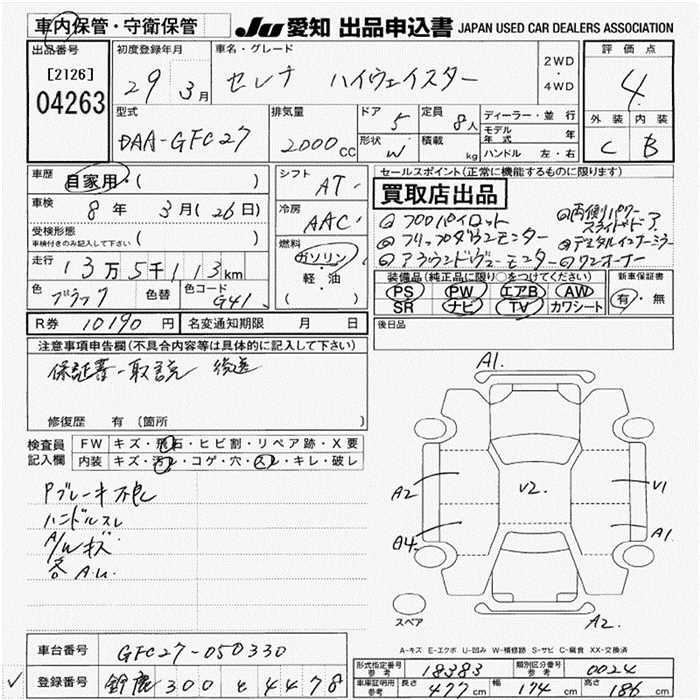 車内保管・守衛保管
JU 愛知 出品申込書 JAPAN USED CAR DEALERS ASSOCIATION
出品番号
[2126]
04263
初度登録年月
29 3月
車名・グレード
セレナ ハイウェイスター
2WD
・
4WD
評価点
4
外装 内装
C B
型式
DAA-GFC27
排気量
2000cc
ドア 5
形状 W
定員 8人
積載 kg
ディーラー・並行
モデル年式 年
ハンドル 左・右
車歴
自家用・( )
車検
8年 3月(26日)
受検形態
車検付きのみ記入して下さい ( )
走行
13万5千113km
色 ブラック 色替
色コード G41
シフト
AT
冷房
AAC
燃料
ガソリン
軽・油
( )
セールスポイント(正常に機能するものに限ります)
買取店出品
プロパイロット
フリップダウンモニター
アラウンドヴューモニター
両側パワースライドドア
デジタルインナーミラー
ワンオーナー
装備品(純正品に限り○をつけてください)
PS PW エアB AW
SR ナビ TV カワシート
新車保証書
有・無
R券 10190円
名変通知期限 月 日
後日品
注意事項申告欄(不具合内容等は具体的に記入して下さい)
保証書-取説 後送
修復歴 有(箇所 )
検査員記入欄
FW キズ・飛石・ヒビ割・リペア跡・X要
内装 キズ・汚レ・コゲ・穴・スレ・キレ・破レ
Pブレーキ
ハンドルスレ
A/Wキズ
各A.U.
A1.
A2
A4
V2.
V1
A1.
A2.
スペア
A-キズ E-エクボ U-凹み W-補修跡 S-サビ C-腐食 XX-交換済
車台番号
GFC27-050330
登録番号
鈴鹿 300 と 4478
形式指定番号 参考 18383
類別区分番号 参考 0024
車庫証明用 参考 長さ 477cm 幅 174cm 高さ 186cm